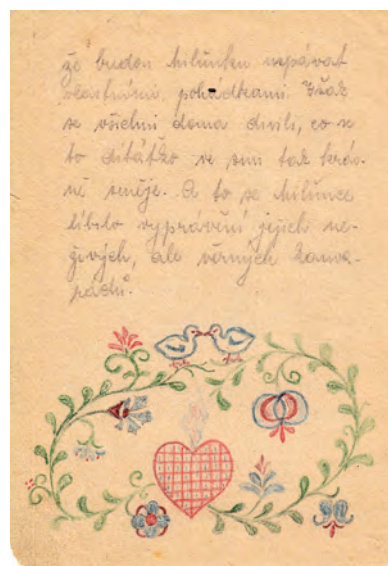 že budou Milünku uspávat
vlastními pohádkami. Však
se všichni doma divili, co se
to děťátko ve snu tak krás-
ně směje. A to se Milünce
líbilo vyprávění jejich ne-
živých, ale věrných kama-
rádů.